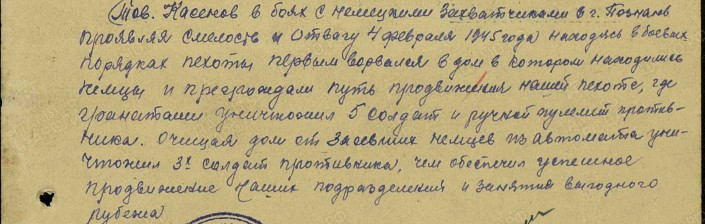 Тов. Касенов в боях с немецкими захватчиками в г. Познань
проявляя смелость и отвагу 4 февраля 1945 года находясь в боевых
порядках пехоты, первым ворвался в дом в котором находились
немцы и преграждали путь продвижения нашей пехоте, где
гранатами уничтожил 5 солдат и ручной пулемет против-
ника. Очищая дом от засевших немцев из автомата уни-
чтожил 3х солдат противника, чем обеспечил успешное
продвижение наших подразделений и занятия выгодного
рубежа